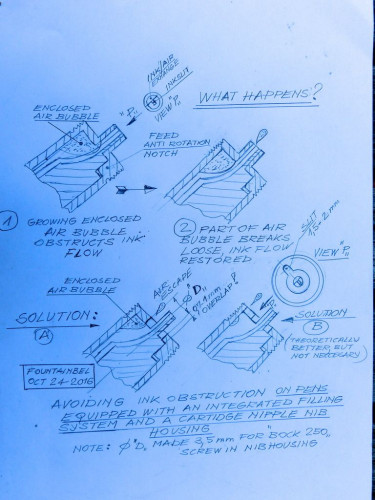 INK/AIR
EXCHANGE
INKSLIT
"P"
VIEW "P"
WHAT HAPPENS?
ENCLOSED
AIR BUBBLE
FEED
ANTI ROTATION
NOTCH
1 GROWING ENCLOSED
AIR BUBBLE
OBSTRUCTS INK
FLOW
2 PART OF AIR
BUBBLE BREAKS
LOOSE, INK FLOW
RESTORED
SLIT
1,5-2mm
VIEW "P"
ENCLOSED
AIR BUBBLE
AIR
ESCAPE
Ø "D"
OVERLAP!
"P"
SOLUTION:
A
SOLUTION
B
(THEORETICALLY
BETTER, BUT
NOT NECESSARY)
FOUNTAINBEL
OCT 24-2016
AVOIDING INK OBSTRUCTION ON PENS
EQUIPPED WITH AN INTEGRATED FILLING
SYSTEM AND A CARTIDGE NIPPLE NIB
HOUSING
NOTE: Ø "D" MADE 3,5 mm FOR "BOCK 250"
SCREW IN NIBHOUSING